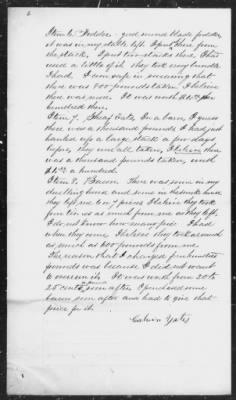 Item 6. Fodder - good sound blade fodder,
it was in my stable loft. I put there from
the stack. I put two stacks there. I had
used a little of it. They took every bundle
I had. I am safe in swearing that
there was 800 pounds taken. I believe
there was more. It was worth $1.50 per
hundred then.
Item 7. Sheaf Oats in a barn. I guess
there were a thousand pounds. I had just
hauled up a large stack a few days
before, they were all taken, I believe there
was a thousand pounds taken, worth
$1.50 a hundred.
Item 8. Bacon. There was some in my
dwelling house and some in the smoke house
they left me 6 or 7 pieces I believe they took
four times as much from me as they left.
I do not know how many lbs I had
when they came. I believe they took around
as much as 600 pounds from me.
The reason that I charged five hundred
pounds was because I did not want
to overrun it. It was worth from 20 to
25 cents, soon after I purchased some
bacon soon after and had to give that
price for it.
Calvin Yates